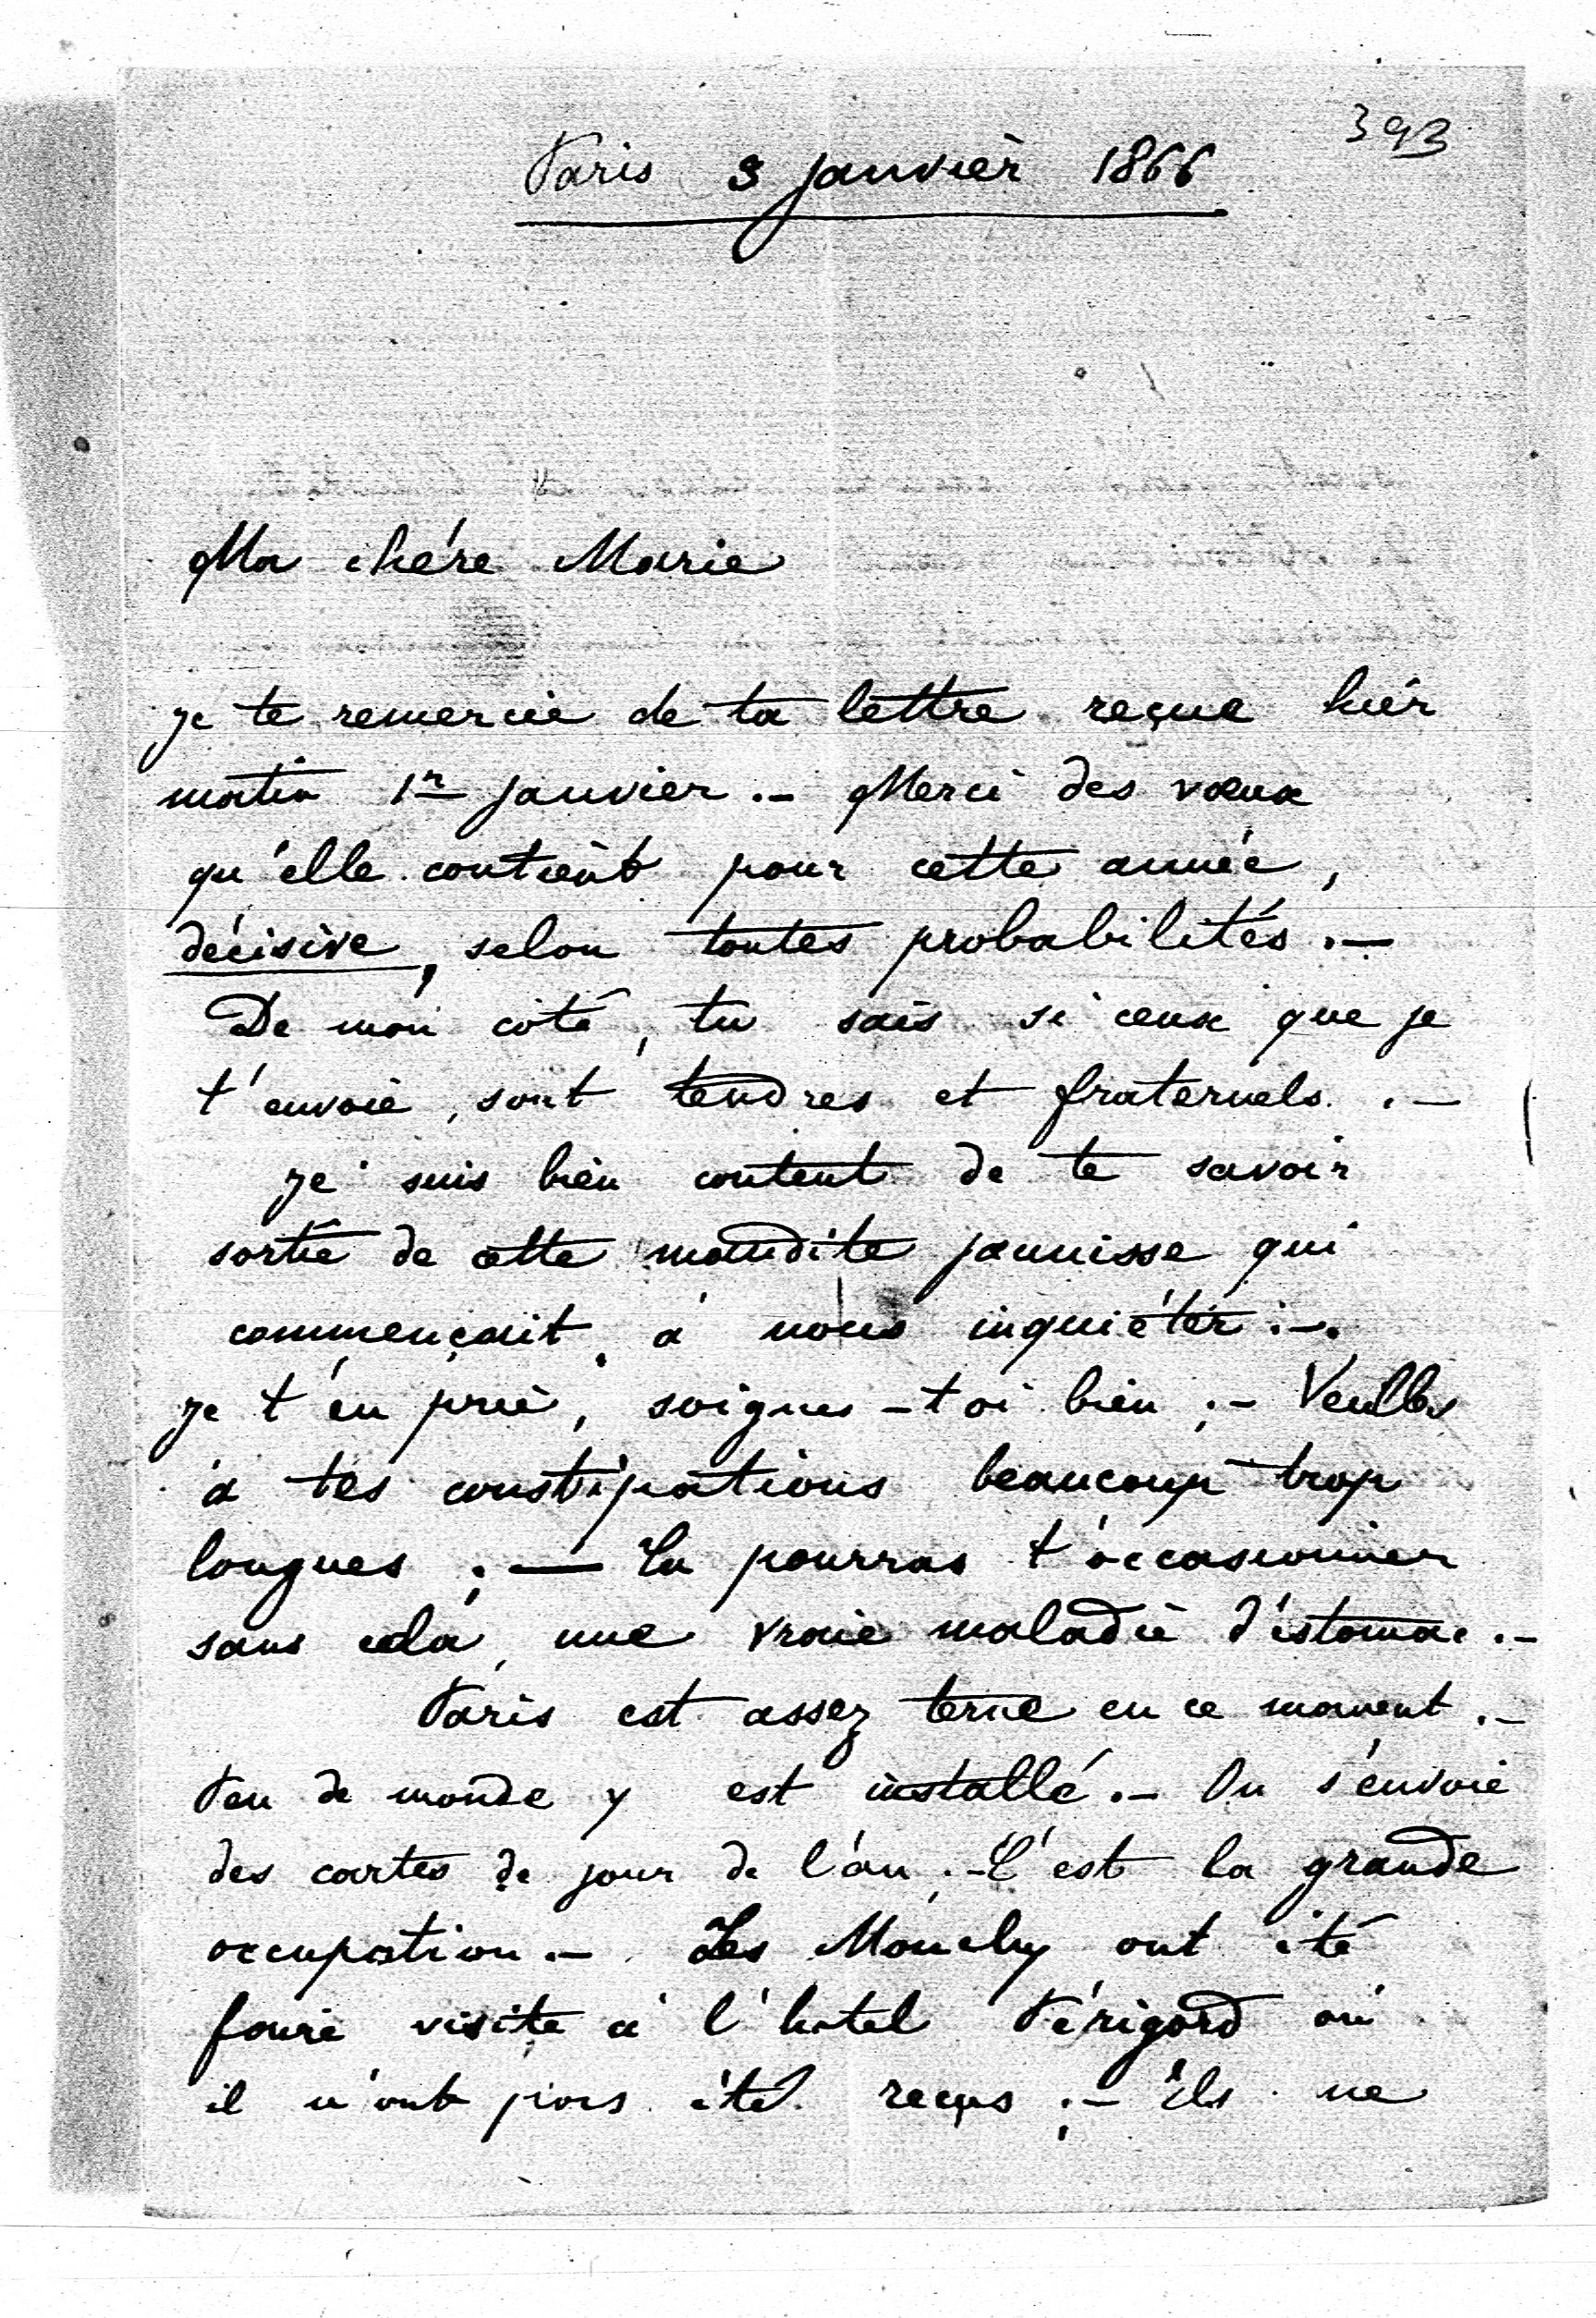 393
Paris 3 janvier 1866
Ma chére Marie
je te remercie de ta lettre reçue hier
matin 1er janvier .- Merci des vœux
qu'elle contient pour cette année,
décisive, selon toutes probabilités .-
De mon côté, tu sais si ceux que je
t'envoie, sont tendres et fraternels .-
je suis bien content de te savoir
sortie de cette maudite jaunisse qui
commençait à nous inquiéter .-
je t'en prie, soignes-toi bien ;- Veilles
à tes constipations beaucoup trop
longues ;- Tu pourras t'occasionner
sans cela, une vraie maladie d'estomac .-
Paris est assez terne en ce moment .-
Peu de monde y est installé .- On s'envoie
des cartes de jour de l'an .- C'est la grande
occupation .- Les Mouchy ont été
faire visite à l'hotel Périgord où
il n'ont pas été reçus ;- ils ne